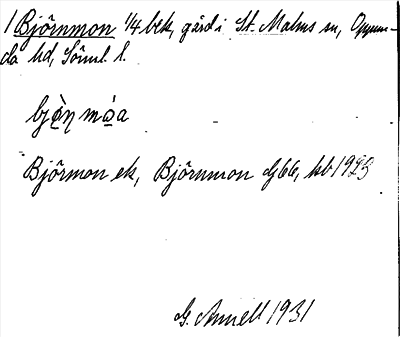 1 Björnmon 1/4 bek, gård i St. Malms sn, Oppun-
da hd, Söml. l.
bjò̩n mo̩a
Björmon ek, Björnmon Gj66, kb 1923
G. Annell 1931